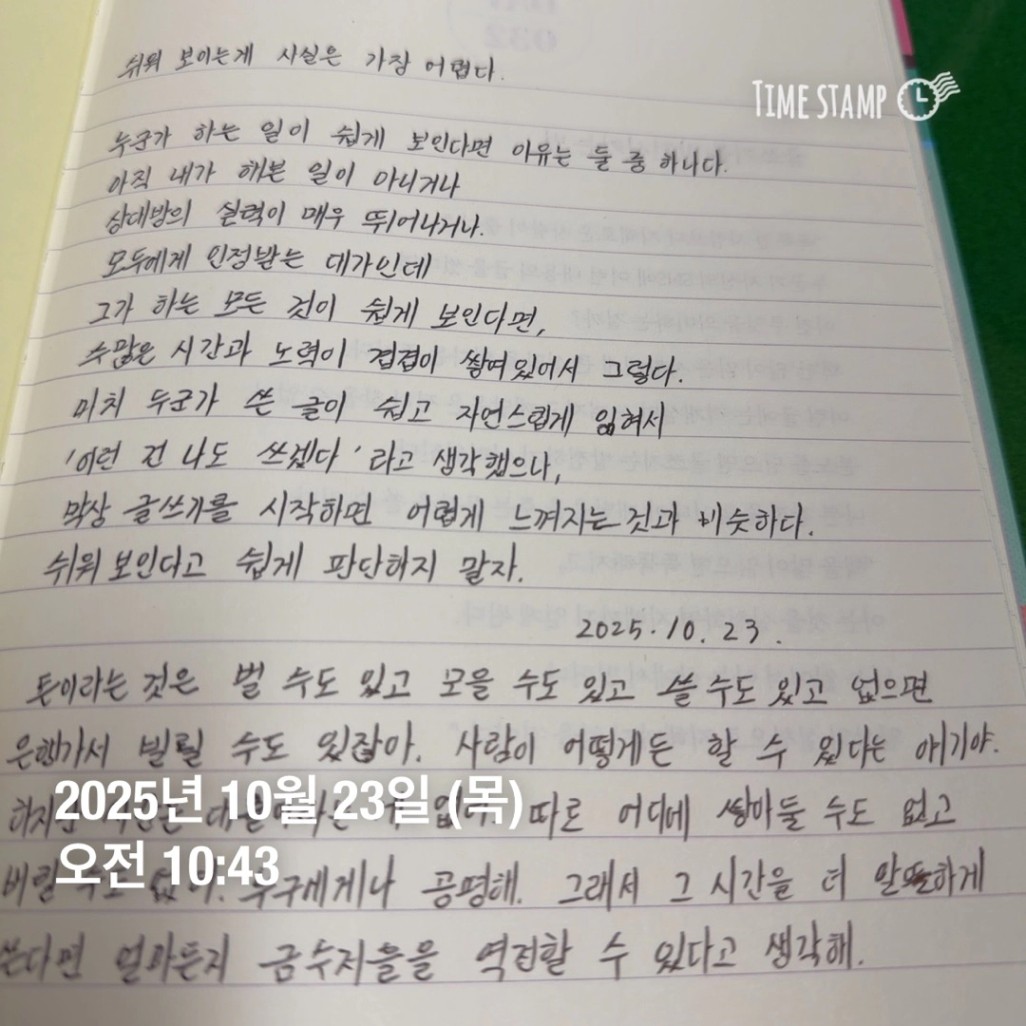 쉬워 보이는게 사실은 가장 어렵다.
TIME STAMP
누군가 하는 일이 쉽게 보인다면 이유는 둘 중 하나다.
아직 내가 해본 일이 아니거나
상대방의 실력이 매우 뛰어나거나.
모두에게 인정받는 대가인데
그가 하는 모든 것이 쉽게 보인다면,
수많은 시간과 노력이 겹겹이 쌓여있어서 그렇다.
마치 누군가 쓴 글이 쉽고 자연스럽게 읽혀서
'이런 건 나도 쓰겠다' 라고 생각했으나,
막상 글쓰기를 시작하면 어렵게 느껴지는 것과 비슷하다.
쉬워 보인다고 쉽게 판단하지 말자.
2025.10.23.
돈이라는 것은 벌 수도 있고 모을 수도 있고 쓸 수도 있고 없으면
은행가서 빌릴 수도 있잖아. 사람이 어떻게든 할 수 있다는 얘기야.
따로 어디에 쌓아둘 수도 없고
누구에게나 공평해. 그래서 그 시간을 더 알뜰하게
쓴다면 얼마든지 금수저들을 역전할 수 있다고 생각해.
2025년 10월 23일 (목)
오전 10:43